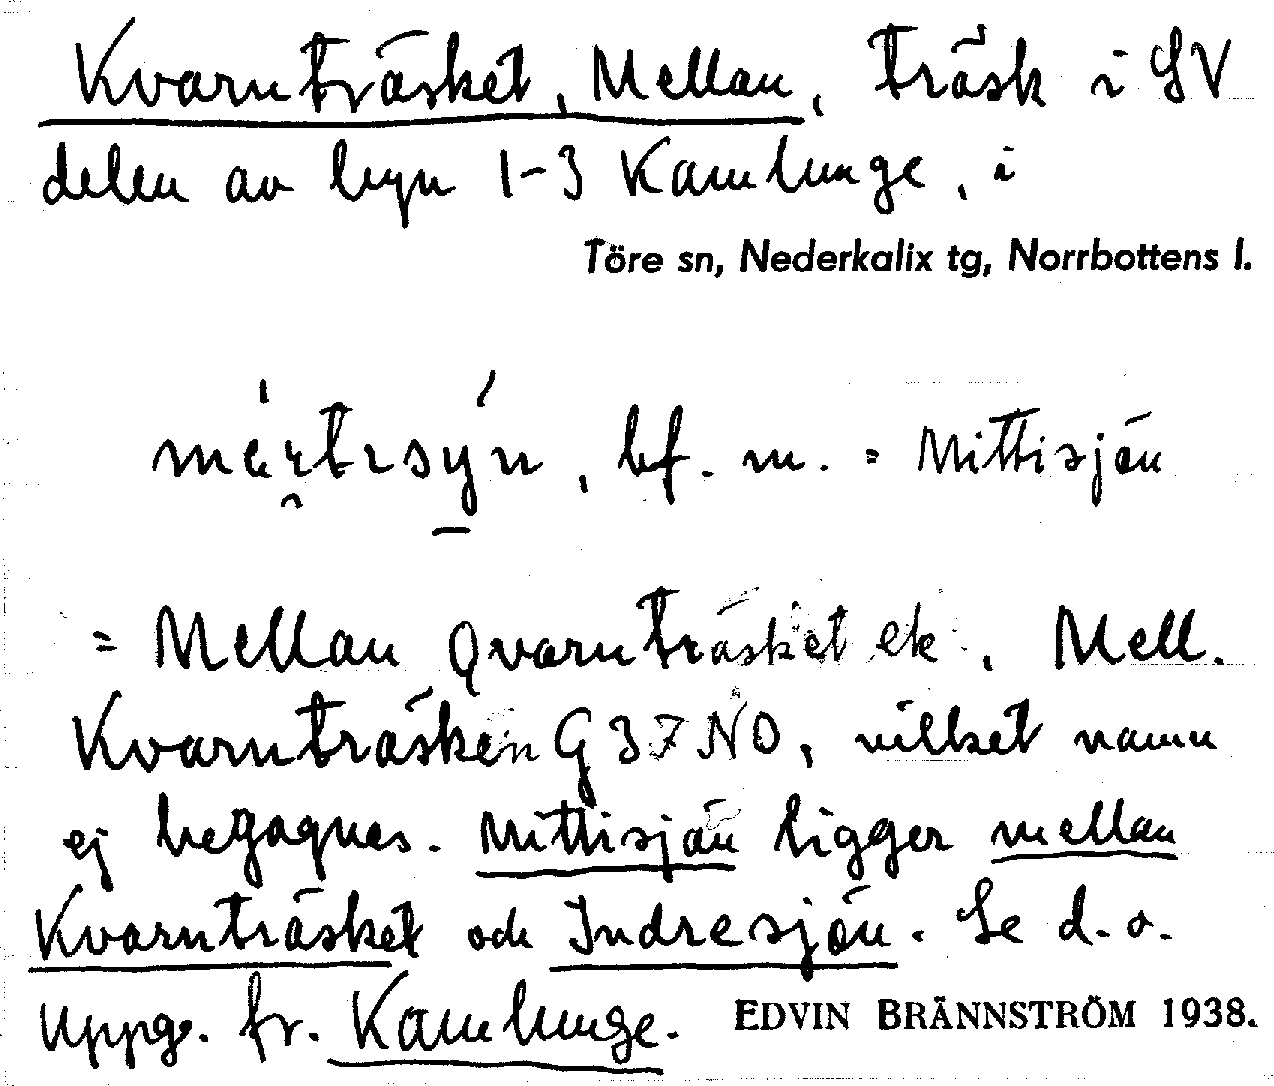 Kvarnträsket, Mellan, träsk i SV
delen av byn 1-3 Kamlunge, i
Töre sn, Nederkalix tg, Norrbottens l.
bf. m. = Mittisjön
= Mellan Qvarnträsket ek., Mell.
Kvarnträsken G 37 NO, vilket namn
ej begagnes. Mittisjön ligger mellan
Kvarnträsket och Indresjön. Se d. o.
Uppg. fr. Kamlunge. EDVIN BRÄNNSTRÖM 1938.